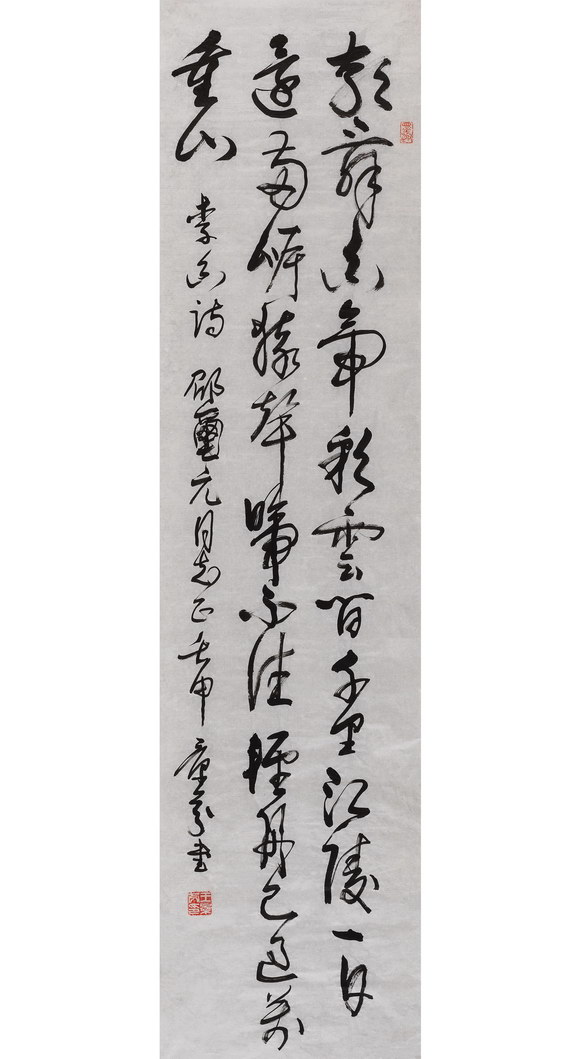 朝辭白帝彩雲間千里江陵一日
還兩岸猿聲啼不住輕舟已過萬
重山 李白詩 邵璽元同志正 壬申 書